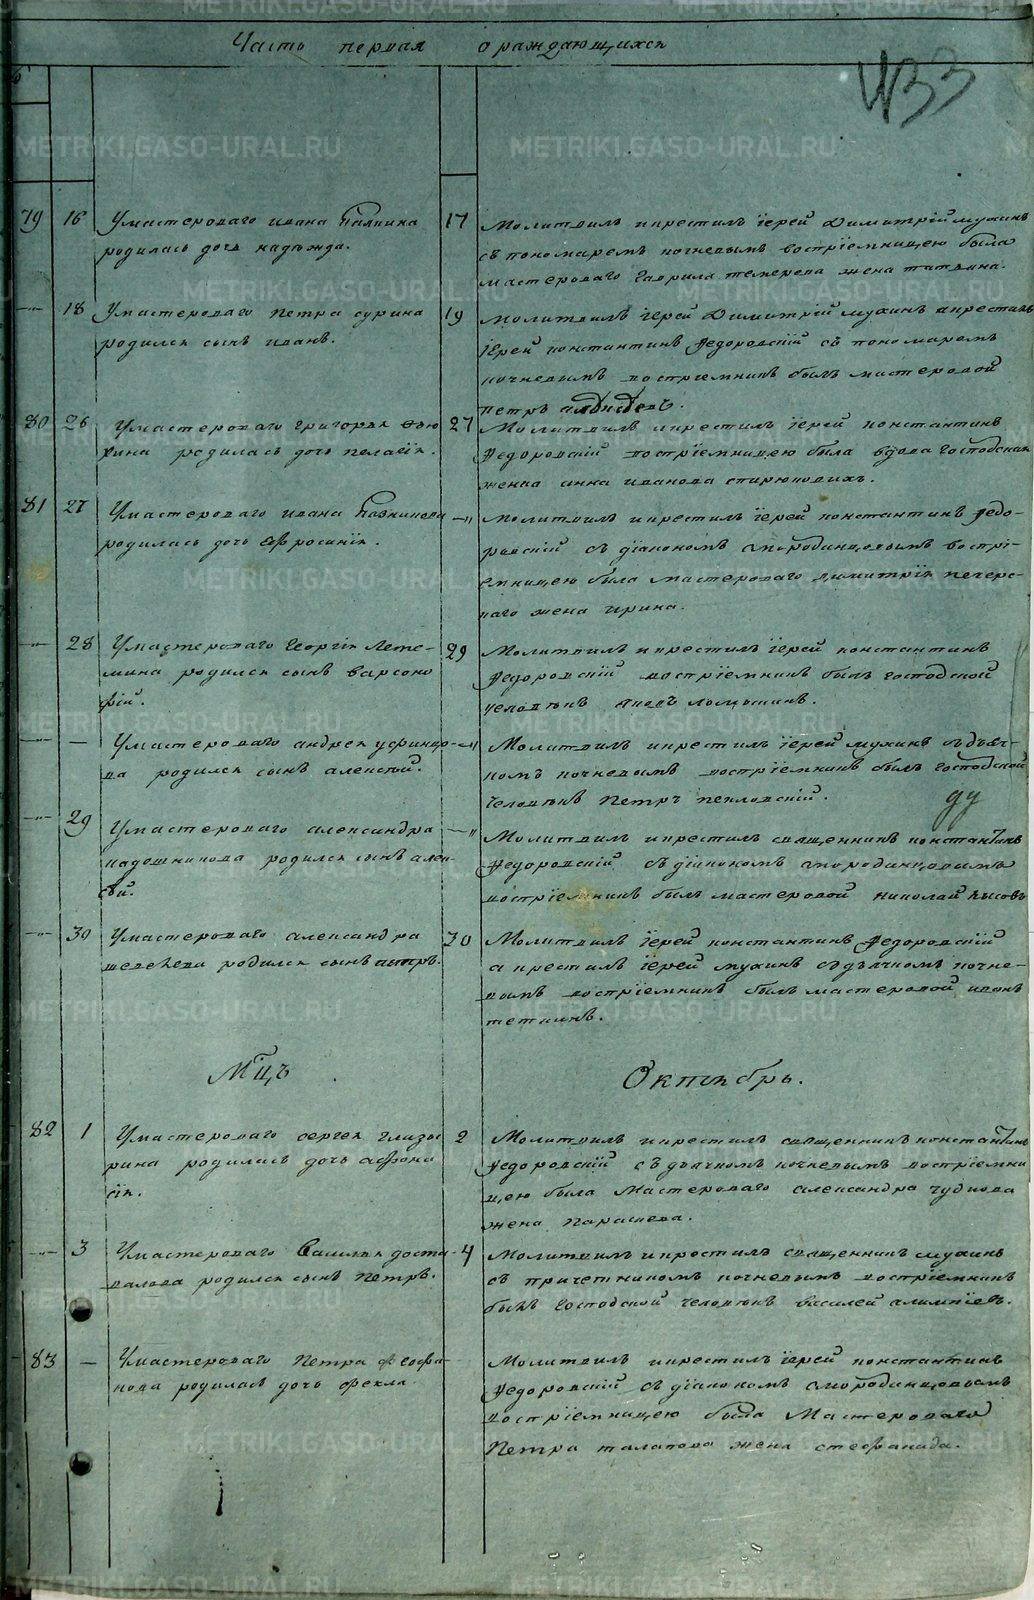 Часть первая о раждающихся
433
79 16 У мастероваго ивана
родилась дочь надѣжда.
17 Молитвилъ и крестилъ їерей Димитрїй мухинъ
съ пономаремъ кочневымъ воспрїемницею была
мастероваго гаврила темерева жена татьяна.
18 У мастероваго петра сурина
родился сынъ иванъ.
19 молитвилъ їерей Димитрїй мухинъ а крестилъ
їерей константинъ Федоровскїй съ пономаремъ
кочневымъ воспрїемникъ былъ мастеровой
петръ
80 26 У мастероваго григорья
родилась дочь пелагїя.
27 Молитвилъ и крестилъ їерей константинъ
Федоровскїй воспрїемницею была вдова господская
женка анна иванова
81 27 У мастероваго ивана
родилась дочь ефросинїя.
—"— Молитвилъ и крестилъ їерей константинъ Федо-
ровскїй съ дїакономъ смородинцовымъ воспрї-
емницею была мастероваго димитрїя печерс-
каго жена ирина.
28 У мастероваго георгїя Лете-
мина родился сынъ варсоно
фїй.
29 Молитвилъ и крестилъ їерей константинъ
Федоровскїй воспрїемникъ былъ господской
человѣкъ
— У мастероваго андрея
родился сынъ алексѣй.
—"— Молитвилъ и крестилъ їерей мухинъ съ дьяч-
комъ кочневымъ воспрїемникъ былъ господской
человѣкъ петръ
29 У мастероваго александра
кадошникова родился сынъ алек-
сѣй.
—"— Молитвилъ и крестилъ священникъ константинъ
Федоровскїй съ дїакономъ смородинцовымъ
воспрїемникъ былъ мастеровой николай лысовъ
30 У мастероваго александра
родился сынъ
30 Молитвилъ їерей константинъ Федоровскїй
а крестилъ їерей мухинъ съ дьячкомъ кочне-
вымъ воспрїемникъ былъ мастеровой иванъ
теткинъ.
Мцъ Октябрь.
82 1 У мастероваго сергея глазы
рина родилась дочь афона
сїя.
2 Молитвилъ и крестилъ священникъ константинъ
Федоровскїй съ дьячкомъ кочневымъ воспрїемни
цею была мастероваго александра чуднова
жена парасиева.
3 У мастероваго василья доста-
валова родился сынъ петръ.
4 Молитвилъ и крестилъ священникъ мухинъ
съ причетникомъ кочневымъ воспрїемникъ
былъ господской человѣкъ василей алимпїевъ.
83 — У мастероваго петра феофа-
нова родилась дочь фекла
Молитвилъ и крестилъ їерей константинъ
Федоровскїй съ дїакономъ смородинцовымъ
воспрїемницею была мастероваго
петра талапова жена стефанида.